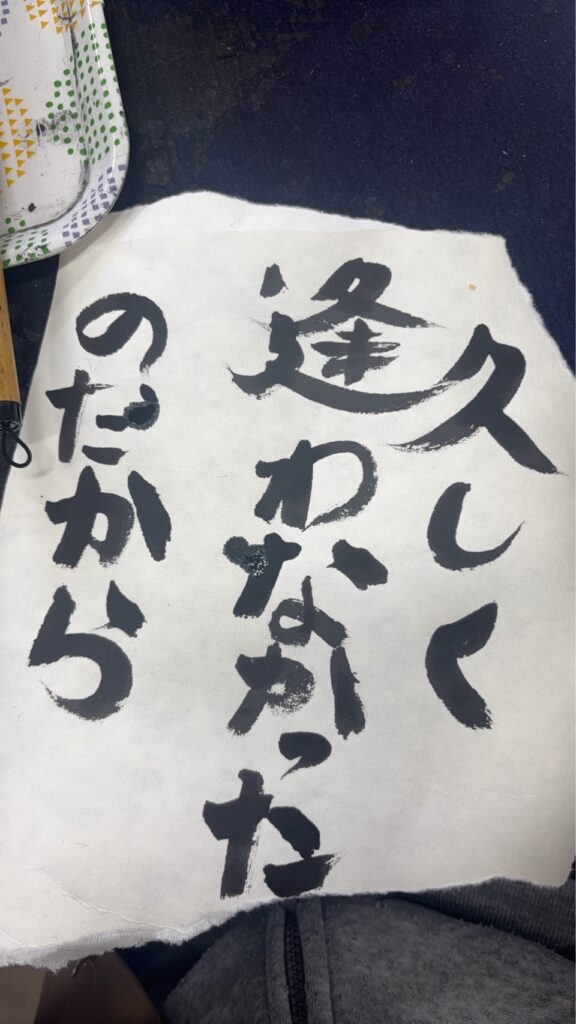 久しく
逢わなかった
のだから